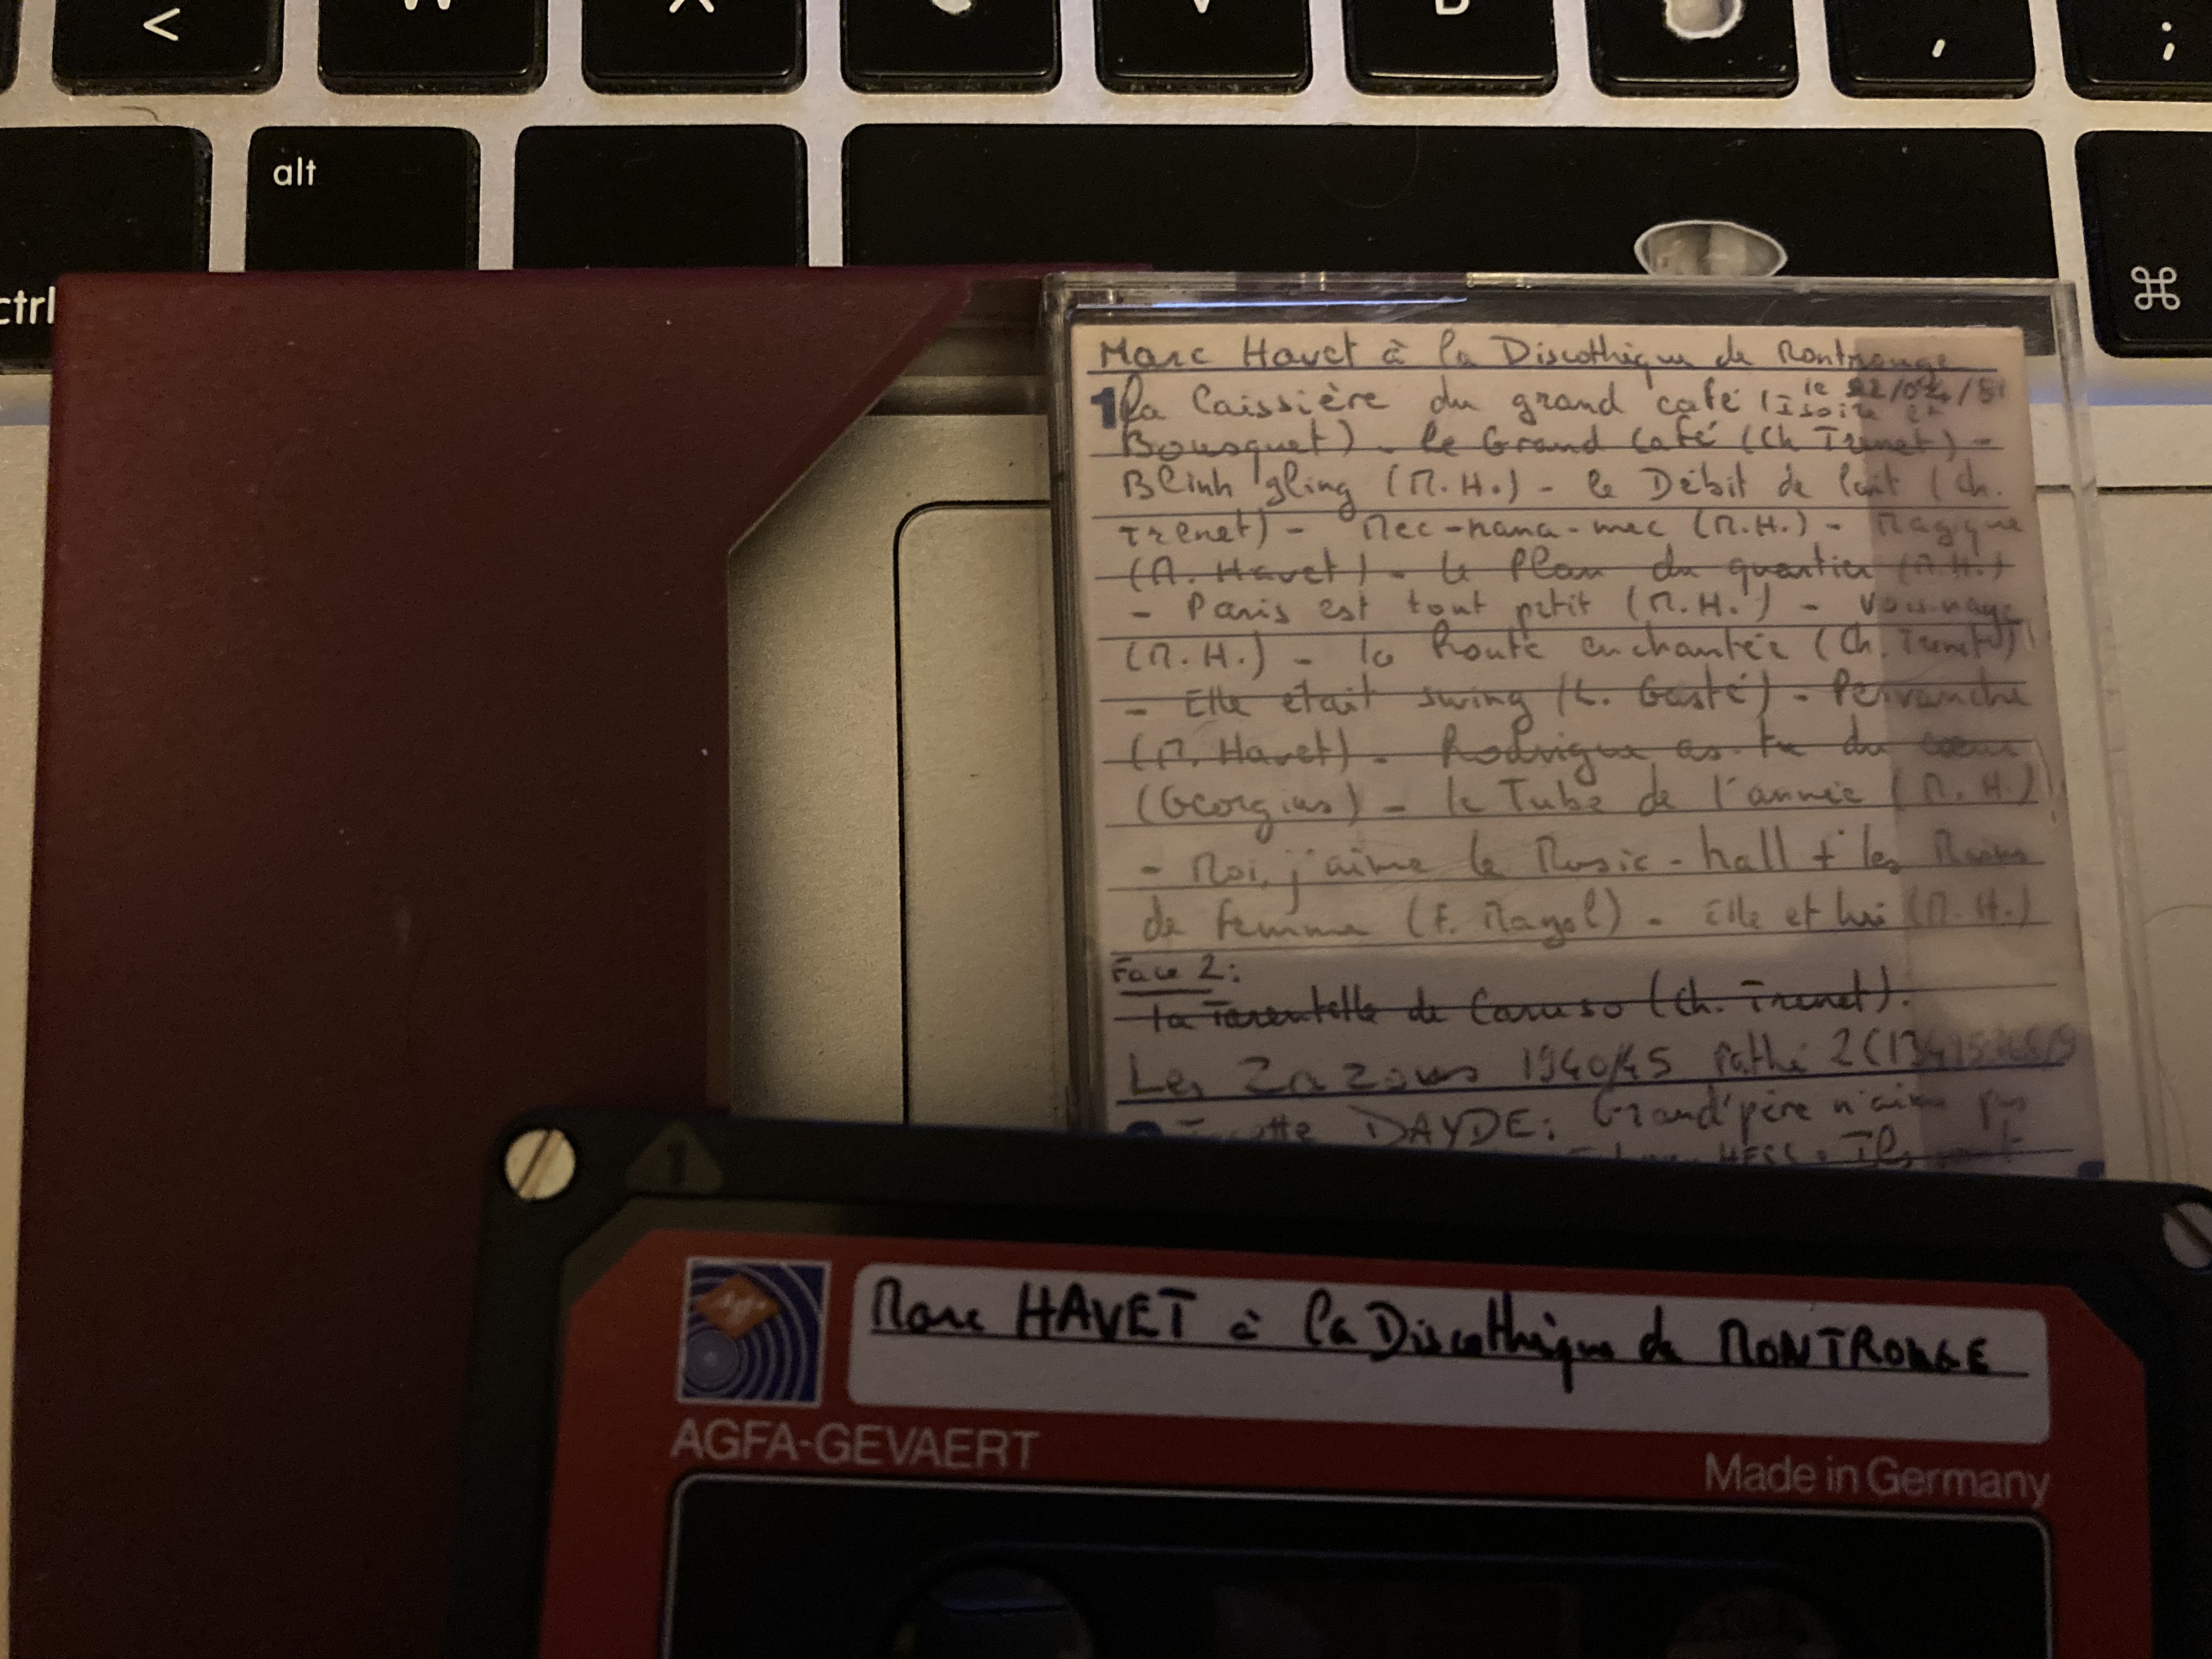 <
W
X
V
B
,
;
alt
ctrl
⌘
Marc Havet à la Discothèque de Montrouge
le 22/04/81
1 la Caissière du grand café (Izoird et
Bousquet) - le Grand Café (Ch Trenet) -
Blinh 'gling (M.H.) - le Débit de lait (Ch.
Trenet) - Mec-nana-mec (M.H.) - Magique
(M. Havet) - le Plan du quartier (M.H.)
- Paris est tout petit (M.H.) - Voisinage
(M.H.) - la Route enchantée (Ch. Trenet)
- Elle était swing (L. Gasté) - Pervenche
(M. Havet) - Rodrigue as-tu du coeur
(Georgius) - le Tube de l'année (M.H.)
- Moi, j'aime le Music-hall + les Mains
de femme (F. Mayol) - Elle et lui (M.H.)
Face 2:
la Tarentelle de Caruso (Ch. Trenet).
Les Zazous 1940/45 Pathé
DAYDE: Grand'père n'aime pas
HESS: Ils
Marc HAVET à la Discothèque de MONTROUGE
Agfa
AGFA-GEVAERT
Made in Germany